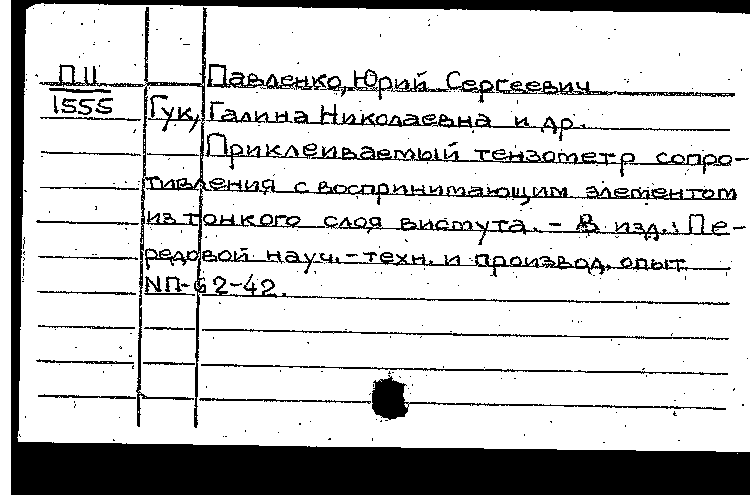 П11 Павленко, Юрий Сергеевич
1555 Гук, Галина Николаевна и др.
Приклеиваемый тензометр сопро-
тивления с воспринимающим элементом
из тонкого слоя висмута. - В изд.: Пе-
редовой науч.-техн. и производ. опыт.
NП-62-42.